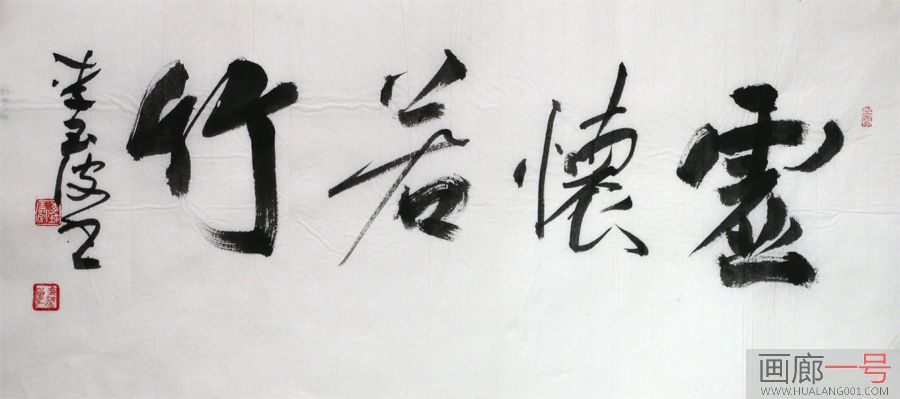 虚懷若竹
玉波书
画廊一号
WWW.HUALANG001.COM